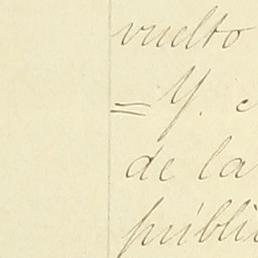 vuelto
= Y.
de la
públi